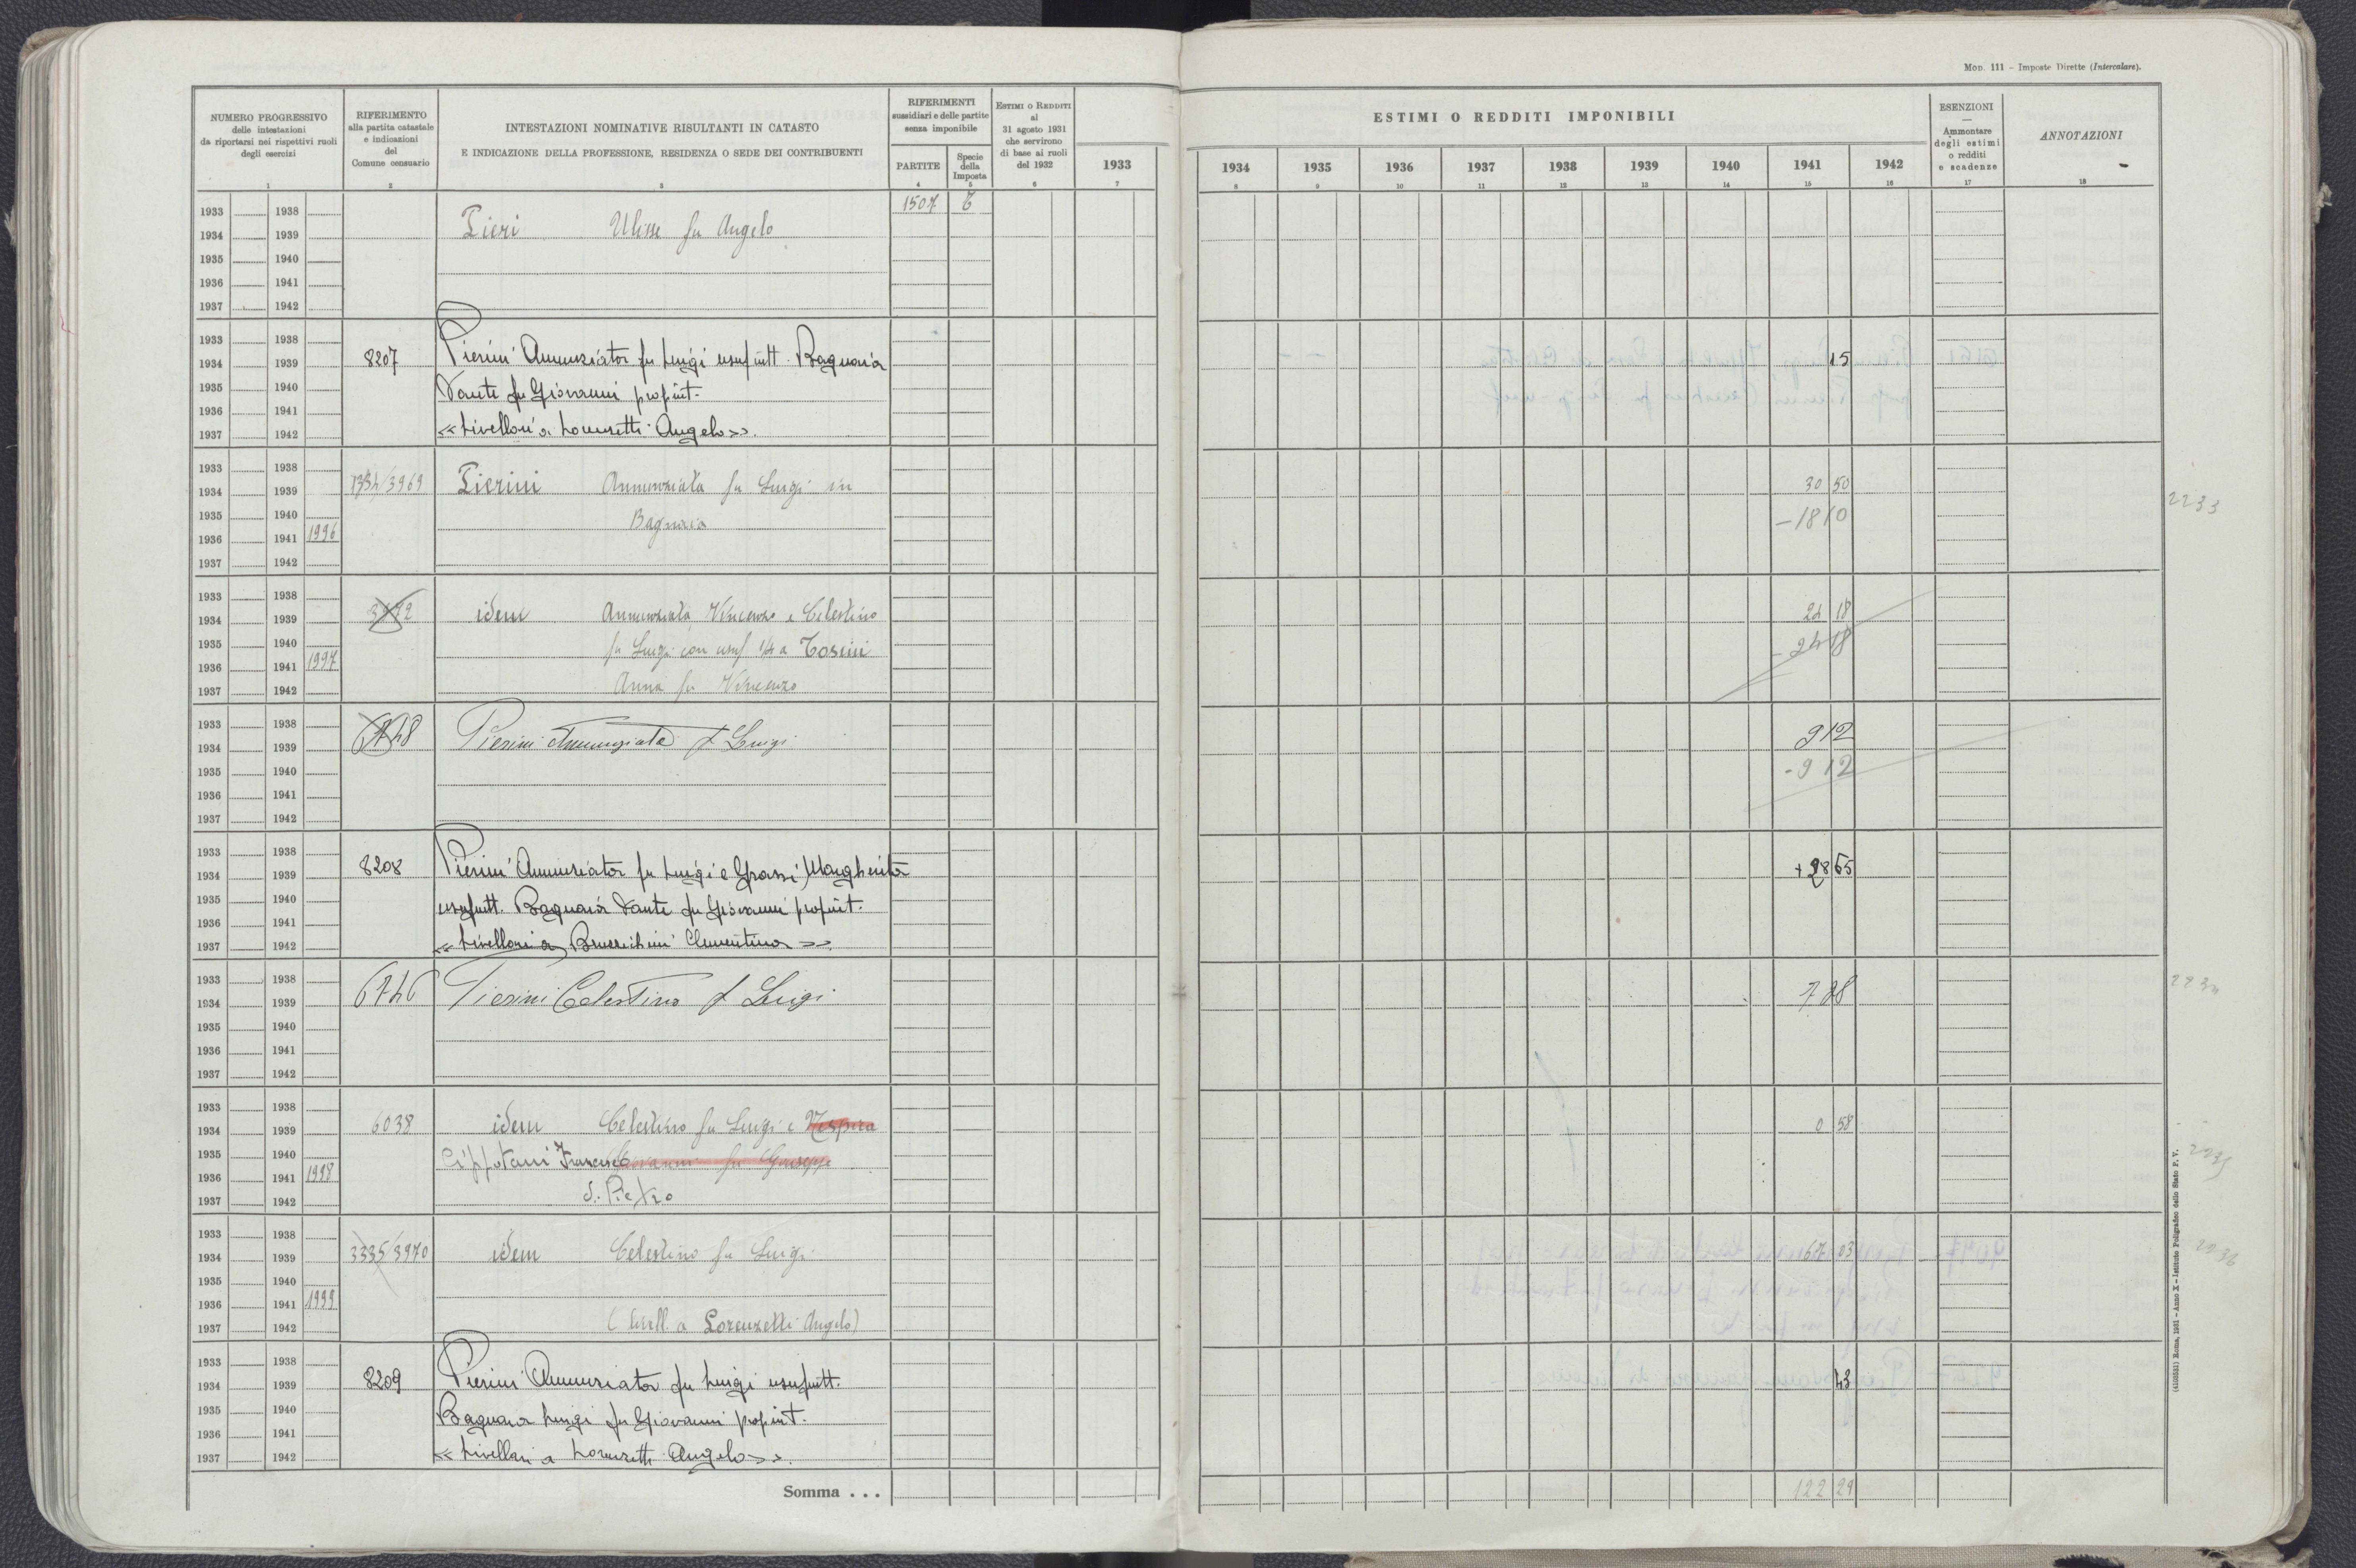 Mod. 111 – Imposte Dirette (Intercalare).
NUMERO PROGRESSIVO
delle intestazioni
da riportarsi nei rispettivi ruoli
degli esercizi
1
RIFERIMENTO
alla partita catastale
e indicazioni
del
Comune censuario
2
INTESTAZIONI NOMINATIVE RISULTANTI IN CATASTO
E INDICAZIONE DELLA PROFESSIONE, RESIDENZA O SEDE DEI CONTRIBUENTI
3
RIFERIMENTI
sussidiari e delle partite
senza imponibile
PARTITE
4
Specie
della
Imposta
5
ESTIMI O REDDITI
al
31 agosto 1931
che servirono
di base ai ruoli
del 1932
6
1933
7
ESTIMI O REDDITI IMPONIBILI
1934 1935 1936 1937 1938 1939 1940 1941 1942
8 9 10 11 12 13 14 15 16
ESENZIONI
—
Ammontare
degli estimi
o redditi
e scadenze
17
ANNOTAZIONI
18
1933 1938 1507 T
1934 1939 Pieri Ulisse fu Angelo
1935 1940
1936 1941
1937 1942
1933 1938
1934 1939 8207 Pierini Annunziata fu Luigi usufrutt. Bagnaia 15
1935 1940 Dante fu Giovanni propriet.
1936 1941
1937 1942 «Livellari a Lorenzetti Angelo».
1933 1938
1934 1939 /3969 Pierini Annunziata fu Luigi in 30 50 2233
1935 1940 Bagnaia – 18 10
1936 1941 1996
1937 1942
1933 1938
1934 1939 idem Annunziata Vincenzo e Celestino 24 18
1935 1940 fu Luigi con usuf 1/4 a Tosini – 24 18
1936 1941 1997
1937 1942 Anna fu Vincenzo
1933 1938
1934 1939 6748 Pierini Annunziata f Luigi 9 12
1935 1940 - 9 12
1936 1941
1937 1942
1933 1938
1934 1939 8208 Pierini Annunziata fu Luigi e Grassi Margherita + 28 65
1935 1940 usufrutt. Bagnaia Dante fu Giovanni propriet.
1936 1941
1937 1942 «Livellari a Clementina»
1933 1938
1934 1939 6746 Pierini Celestino f Luigi 7 28
1935 1940
1936 1941
1937 1942
1933 1938
1934 1939 6038 idem Celestino fu Luigi e 0 58
1935 1940 Cippitani Francesco Giovanni fu Giuseppe
1936 1941 1998
1937 1942 di Pietro
1933 1938
1934 1939 3335/3970 idem Celestino fu Luigi 67 03
1935 1940
1936 1941 1999
1937 1942 (livell. a Lorenzetti Angelo)
1933 1938
1934 1939 8209 Pierini Annunziata fu Luigi usufrutt. 43
1935 1940 Bagnaia Luigi fu Giovanni propriet.
1936 1941
1937 1942 «Livellari a Lorenzetti Angelo».
Somma . . . 122 29
(4103531) Roma, 1931 – Anno X – Istituto Poligrafico dello Stato P. V.